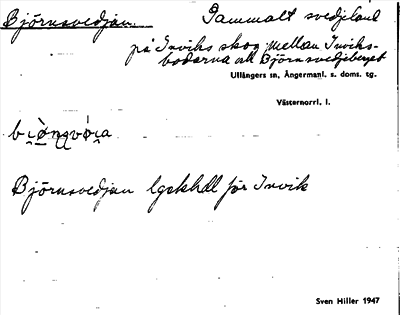 Björnsvedjan.
Gammalt svedjeland
på Inviks skog mellan Inviks-
bodarna och Björnsvedjeberget
Ullångers sn, Ångermanl. s. doms. tg.
Västernorrl. l.
Björnsvedjan för Invik
Sven Hiller 1947